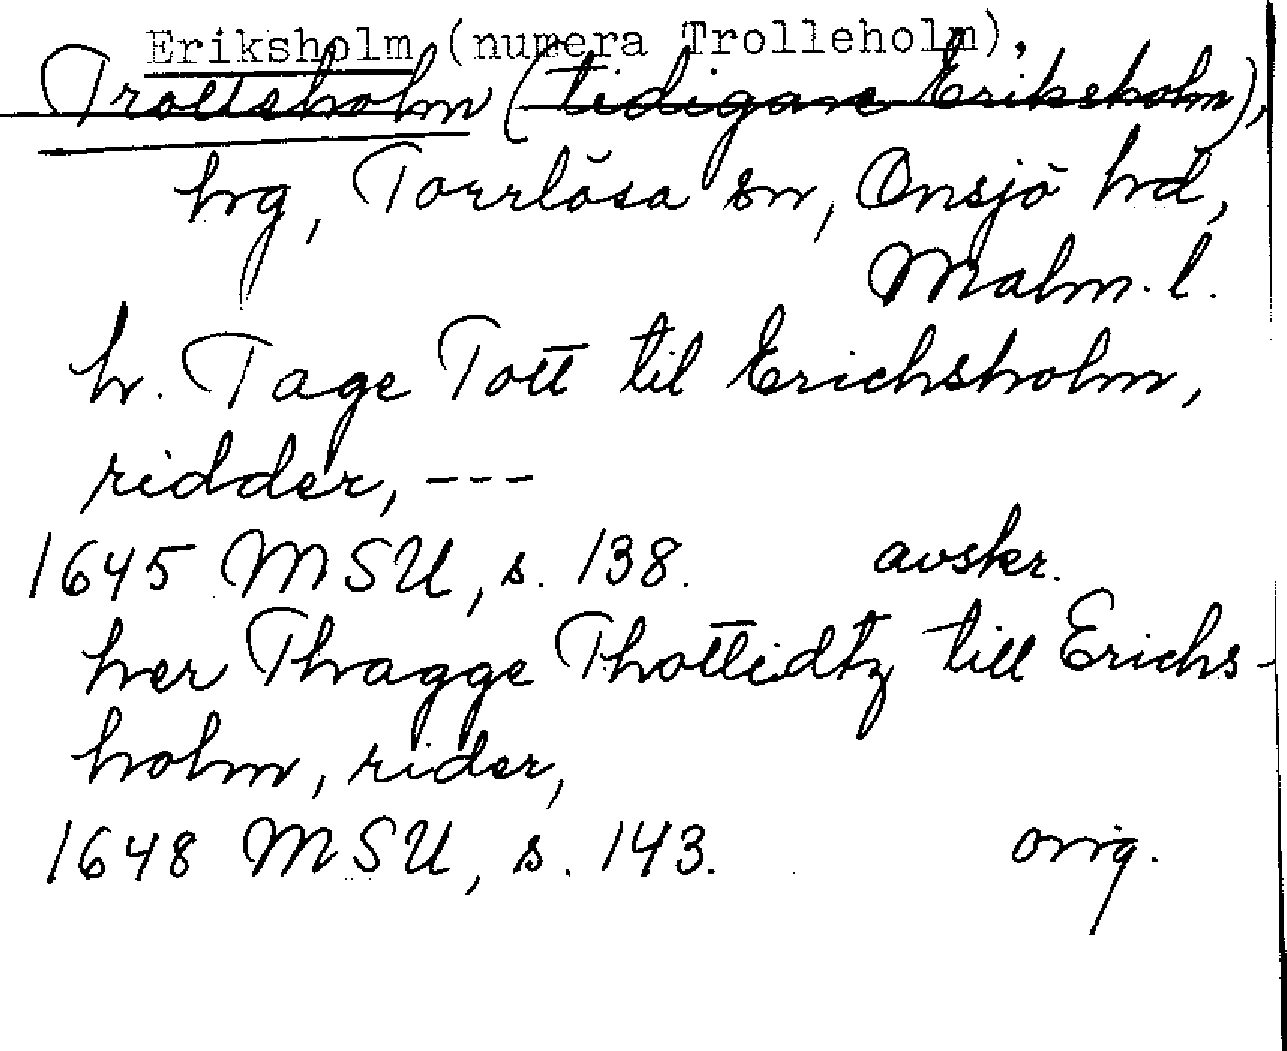 Eriksholm (numera Trolleholm),
Trollsholm (tidigare Eriksholm),
hg, Torrlösa sn, Onsjö hd,
Malm. l.
hr. Tage Tott til Erichsholm,
ridder, ---
1645 MSU, s. 138. avskr.
her Thagge Thottidtz till Erichs-
holm, rider,
1648 MSU, s. 143. orig.